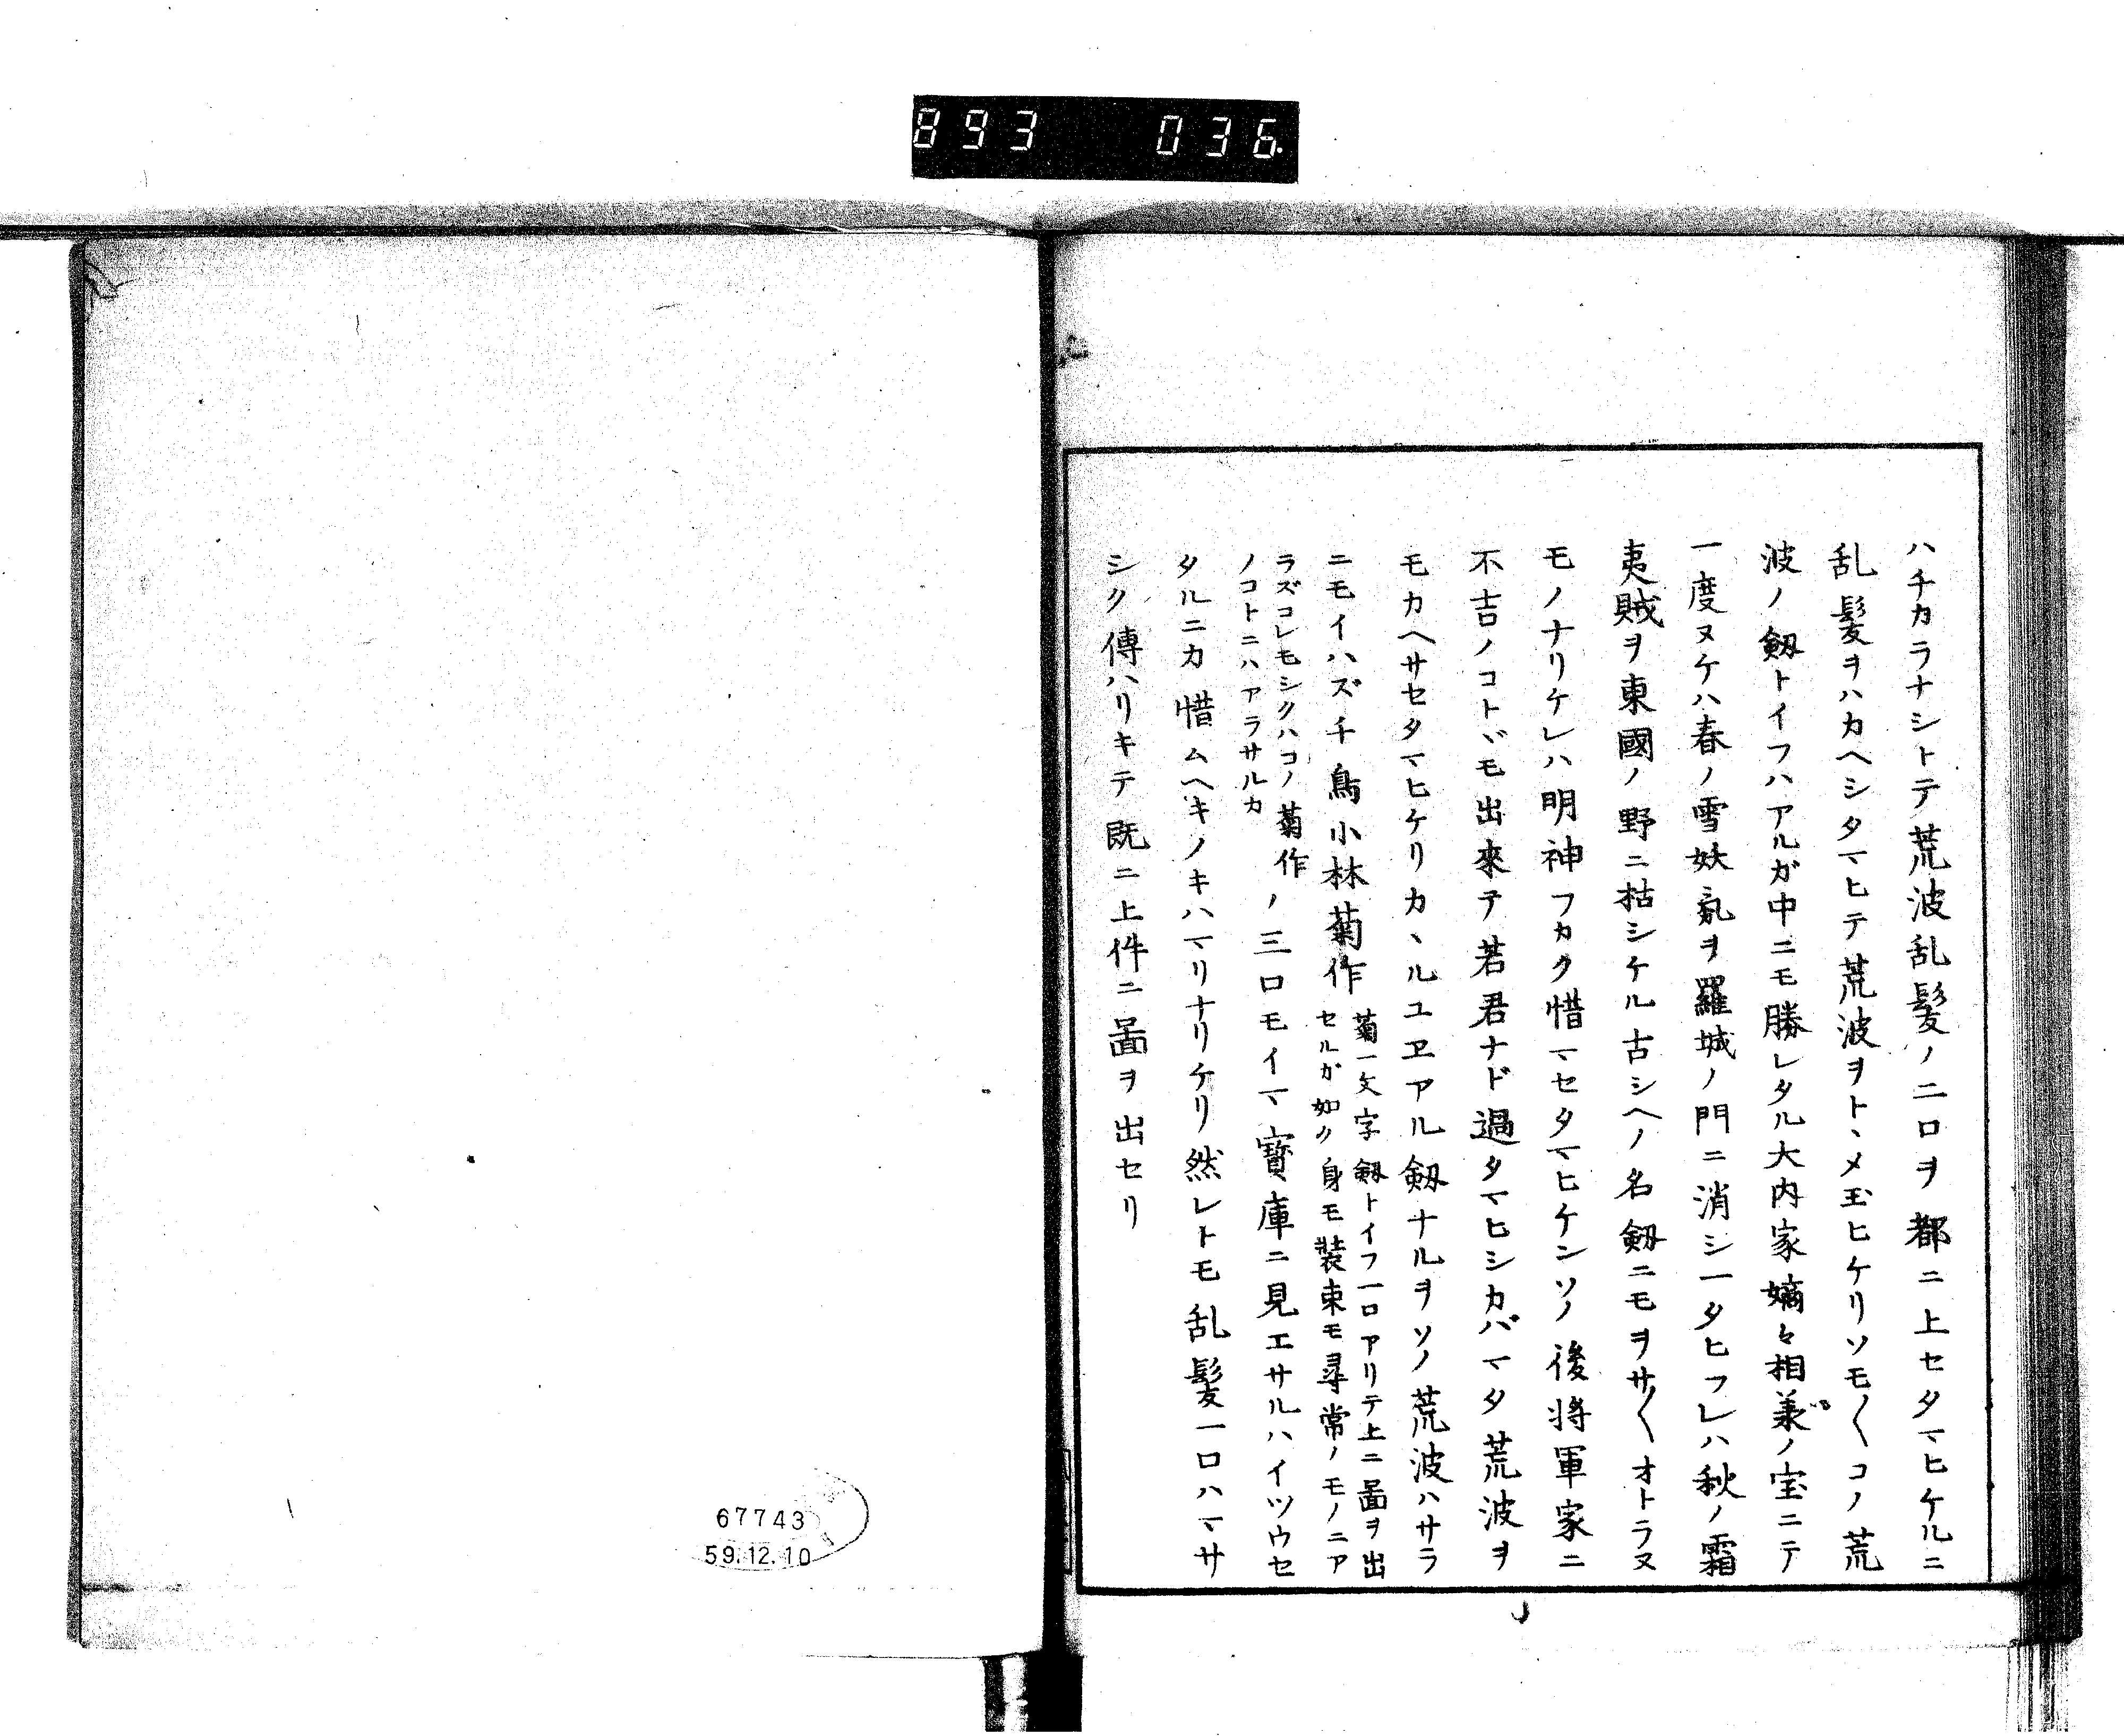 893 036
ハチカラナシトテ荒波乱髪ノ二口ヲ都ニ上セタマヒケルニ
乱髪ヲハカヘシタマヒテ荒波ヲトヽメ玉ヒケリソモ〱コノ荒
波ノ劔トイフハアルガ中ニモ勝レタル大内家嫡々相兼ノ宝ニテ
一度ヌケハ春ノ雪妖氣ヲ羅城ノ門ニ消シ一タヒフレハ秋ノ霜
夷賊ヲ東國ノ野ニ枯シケル古シヘノ名劔ニモヲサ〱オトラヌ
モノナリケレハ明神フカク惜マセタマヒケンソノ後将軍家ニ
不吉ノコトヾモ出來テ若君ナド過タマヒシカバマタ荒波ヲ
モカヘサセタマヒケリカヽルユヱアル劔ナルヲソノ荒波ハサラ
ニモイハズ千鳥小林菊作
菊一文字劔トイフ一口アリテ上ニ啚ヲ出
セルガ如ク身モ装束モ尋常ノモノニア
ラズコレモシクハコノ菊作
ノコトニハアラサルカ
ノ三口モイマ寶庫ニ見エサルハイツウセ
タルニカ惜ムヘキノキハマリナリケリ然レトモ乱髪一口ハマサ
シク傳ハリキテ既ニ上件ニ啚ヲ出セリ
67743
59.12.10